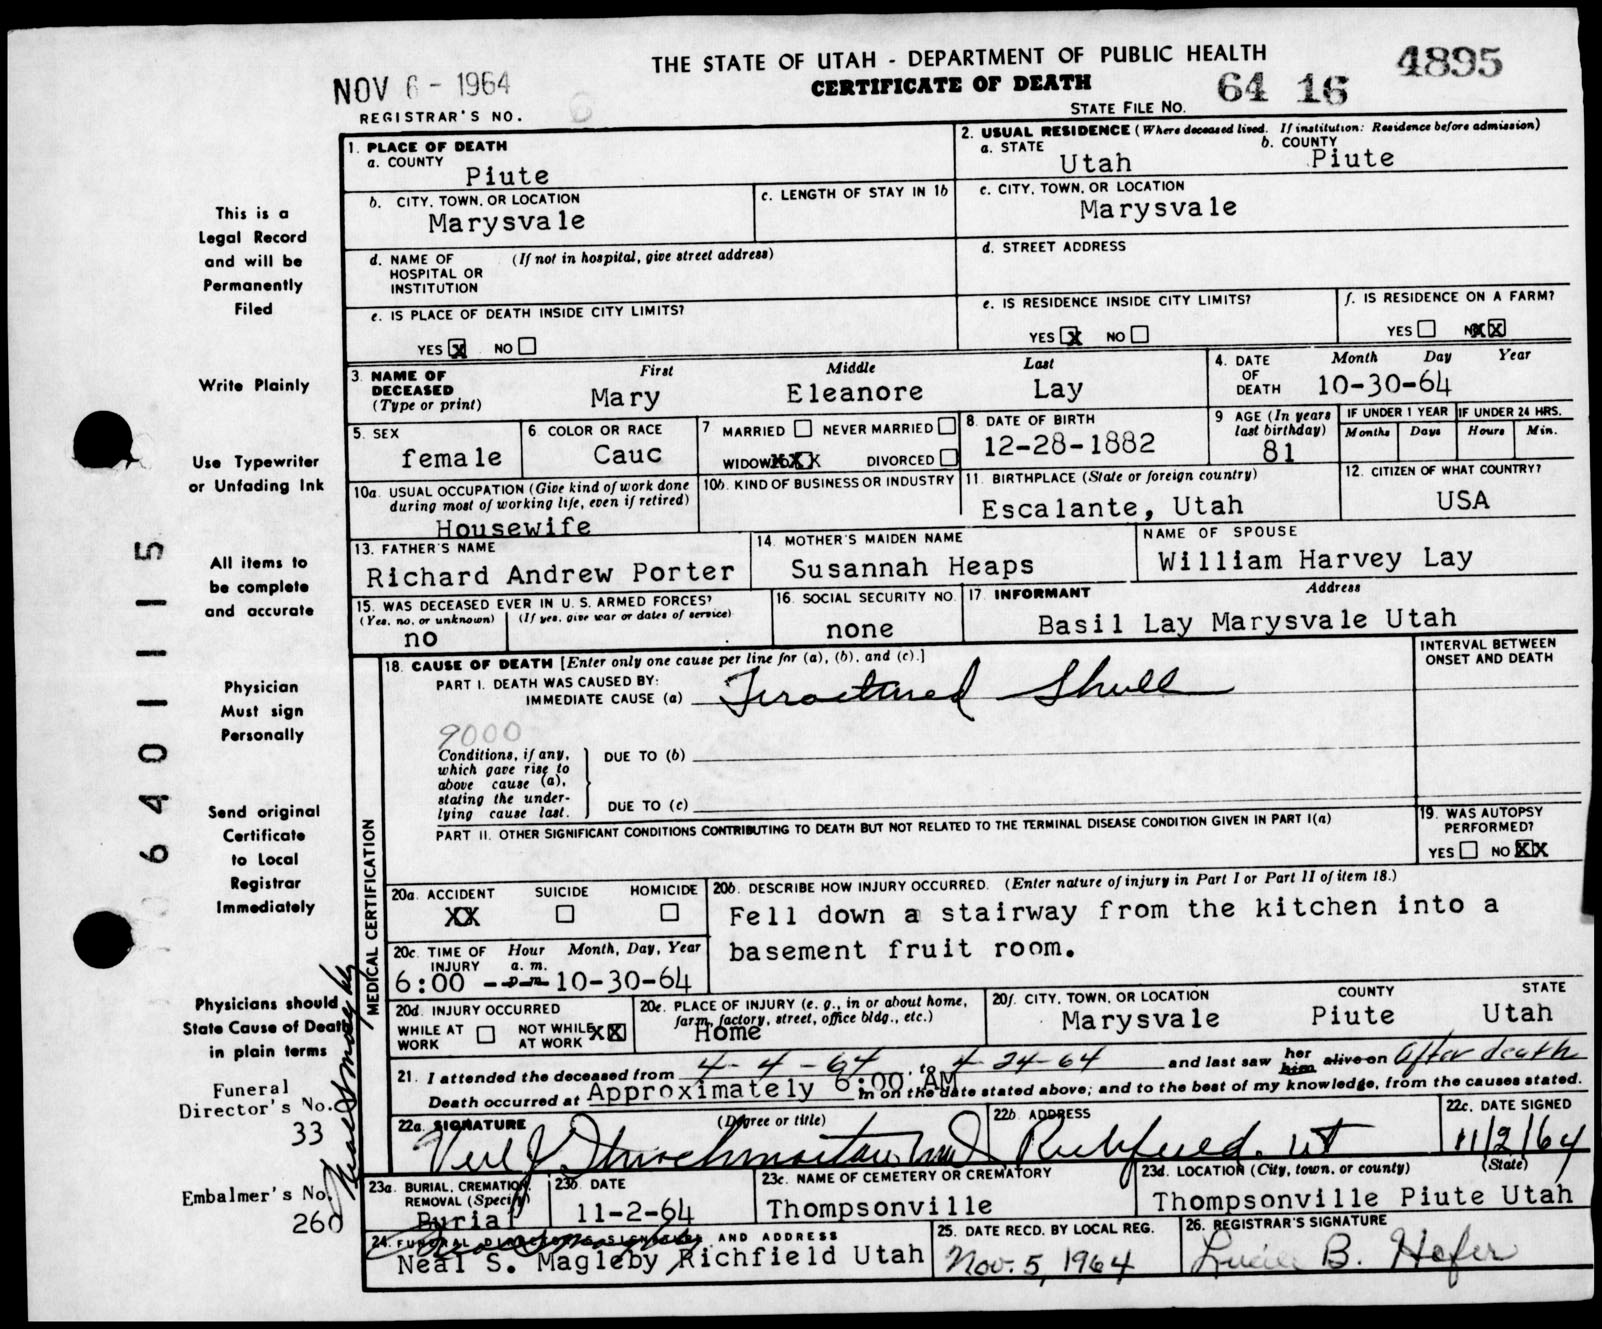 THE STATE OF UTAH - DEPARTMENT OF PUBLIC HEALTH
CERTIFICATE OF DEATH
4895
NOV 6 - 1964
REGISTRAR'S NO. 6
STATE FILE NO. 64 16
1. PLACE OF DEATH
a. COUNTY
Piute
2. USUAL RESIDENCE (Where deceased lived. If institution: Residence before admission)
a. STATE
Utah
b. COUNTY
Piute
b. CITY, TOWN, OR LOCATION
Marysvale
c. LENGTH OF STAY IN 1b
c. CITY, TOWN, OR LOCATION
Marysvale
d. NAME OF HOSPITAL OR INSTITUTION
(If not in hospital, give street address)
d. STREET ADDRESS
e. IS PLACE OF DEATH INSIDE CITY LIMITS?
YES X NO
e. IS RESIDENCE INSIDE CITY LIMITS?
YES X NO
f. IS RESIDENCE ON A FARM?
YES NO XX
3. NAME OF DECEASED
(Type or print)
First Middle Last
Mary Eleanore Lay
4. DATE OF DEATH
Month Day Year
10-30-64
5. SEX
female
6. COLOR OR RACE
Cauc
7 MARRIED NEVER MARRIED
WIDOWED XXX DIVORCED
8. DATE OF BIRTH
12-28-1882
9 AGE (In years last birthday)
81
IF UNDER 1 YEAR
Months Days
IF UNDER 24 HRS.
Hours Min.
10a. USUAL OCCUPATION (Give kind of work done during most of working life, even if retired)
Housewife
10b. KIND OF BUSINESS OR INDUSTRY
11. BIRTHPLACE (State or foreign country)
Escalante, Utah
12. CITIZEN OF WHAT COUNTRY?
USA
13. FATHER'S NAME
Richard Andrew Porter
14. MOTHER'S MAIDEN NAME
Susannah Heaps
NAME OF SPOUSE
William Harvey Lay
15. WAS DECEASED EVER IN U. S. ARMED FORCES?
(Yes, no, or unknown) (If yes, give war or dates of service)
no
16. SOCIAL SECURITY NO.
none
17. INFORMANT Address
Basil Lay Marysvale Utah
MEDICAL CERTIFICATION
18. CAUSE OF DEATH [Enter only one cause per line for (a), (b), and (c).]
INTERVAL BETWEEN ONSET AND DEATH
PART I. DEATH WAS CAUSED BY:
IMMEDIATE CAUSE (a) Fractured Skull
9000
Conditions, if any, which gave rise to above cause (a), stating the underlying cause last.
DUE TO (b)
DUE TO (c)
PART II. OTHER SIGNIFICANT CONDITIONS CONTRIBUTING TO DEATH BUT NOT RELATED TO THE TERMINAL DISEASE CONDITION GIVEN IN PART I(a)
19. WAS AUTOPSY PERFORMED?
YES NO XX
20a. ACCIDENT SUICIDE HOMICIDE
XX
20b. DESCRIBE HOW INJURY OCCURRED. (Enter nature of injury in Part I or Part II of item 18.)
Fell down a stairway from the kitchen into a
basement fruit room.
20c. TIME OF INJURY
Hour Month, Day, Year
a. m.
p. m.
6:00 10-30-64
20d. INJURY OCCURRED
WHILE AT WORK NOT WHILE AT WORK XX
20e. PLACE OF INJURY (e. g., in or about home, farm, factory, street, office bldg., etc.)
Home
20f. CITY, TOWN, OR LOCATION COUNTY STATE
Marysvale Piute Utah
21. I attended the deceased from 4-4-64, to 4-24-64 and last saw her him alive on After death
Death occurred at Approximately 6:00 AM m on the date stated above; and to the best of my knowledge, from the causes stated.
22a. SIGNATURE (Degree or title)
22b. ADDRESS
Richfield. Ut
22c. DATE SIGNED
11/2/64
23a. BURIAL, CREMATION, REMOVAL (Specify)
Burial
23b. DATE
11-2-64
23c. NAME OF CEMETERY OR CREMATORY
Thompsonville
23d. LOCATION (City, town, or county) (State)
Thompsonville Piute Utah
24. FUNERAL DIRECTOR'S SIGNATURE AND ADDRESS
Neal S. Magleby Richfield Utah
25. DATE RECD. BY LOCAL REG.
Nov. 5, 1964
26. REGISTRAR'S SIGNATURE
Lucile B. Hofer
This is a
Legal Record
and will be
Permanently
Filed
Write Plainly
Use Typewriter
or Unfading Ink
All items to
be complete
and accurate
Physician
Must sign
Personally
Send original
Certificate
to Local
Registrar
Immediately
Physicians should
State Cause of Death
in plain terms
Funeral
Director's No.
33
Embalmer's No.
260
Neal S Magleby
6401115